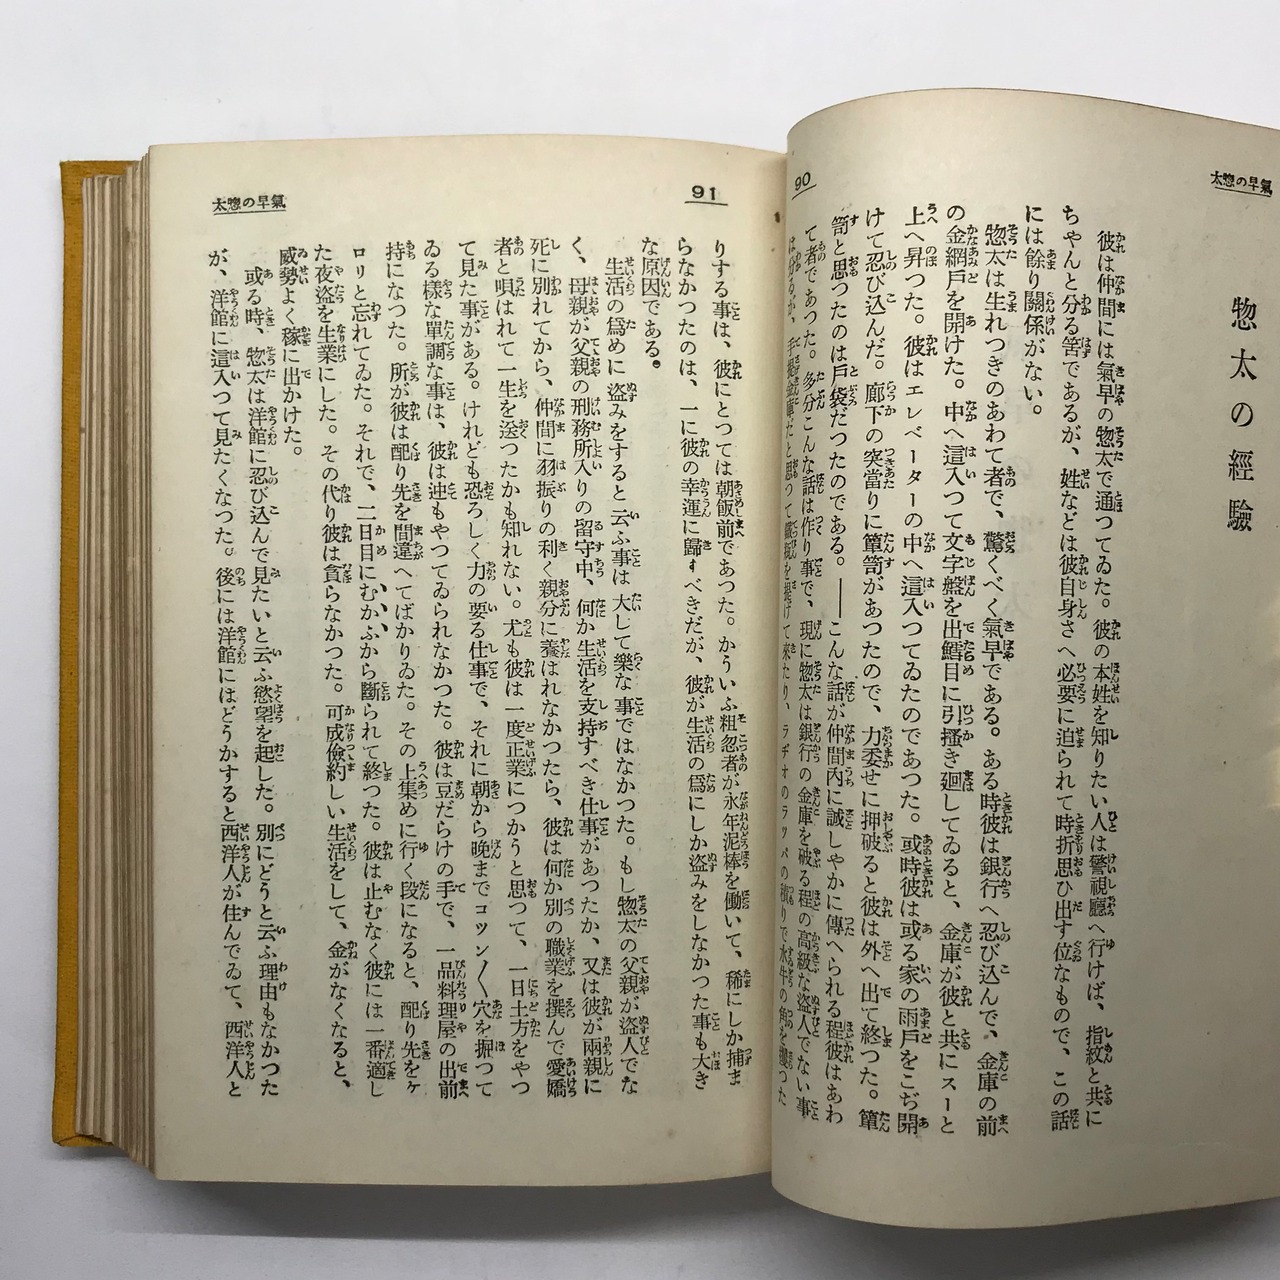 太惣の早氣
90
惣太の經驗
彼は仲間には氣早の惣太で通つてゐた。彼の本姓を知りたい人は警視廳へ行けば、指紋と共に
ちやんと分る筈であるが、姓などは彼自身さへ必要に迫られて時折思ひ出す位なもので、この話
には餘り關係がない。
惣太は生れつきのあわて者で、驚くべく氣早である。ある時彼は銀行へ忍び込んで、金庫の前
の金網戸を開けた。中へ這入つて文字盤を出鱈目に引搔き廻してゐると、金庫が彼と共にスーと
上へ昇つた。彼はエレベーターの中へ這入つてゐたのであつた。或時彼は或る家の雨戸をこぢ開
けて忍び込んだ。廊下の突當りに簞笥があつたので、力委せに押破ると彼は外へ出て終つた。簞
笥と思つたのは戸袋だつたのである。――こんな話が仲間内に誠しやかに傳へられる程彼はあわ
て者であつた。多分こんな話は作り事で、現に惣太は銀行の金庫を破る程の高級な盗人でない事
は分るが、手提金庫だと思つて鐵瓶を提げて來たり、ラヂオのラッパの積りで水牛の角を擔つた
91
太惣の早氣
りする事は、彼にとつては朝飯前であつた。かういふ粗忽者が永年泥棒を働いて、稀にしか捕ま
らなかつたのは、一に彼の幸運に歸すべきだが、彼が生活の爲にしか盗みをしなかつた事も大き
な原因である。
生活の爲めに盗みをすると云ふ事は大して樂な事ではなかつた。もし惣太の父親が盗人でな
く、母親が父親の刑務所入りの留守中、何か生活を支持すべき仕事があつたか、又は彼が兩親に
死に別れてから、仲間に羽振りの利く親分に養はれなかつたら、彼は何か別の職業を撰んで愛嬌
者と唄はれて一生を送つたかも知れない。尤も彼は一度正業につかうと思つて、一日土方をやつ
て見た事がある。けれども恐ろしく力の要る仕事で、それに朝から晩までコツン〳〵穴を掘つて
ゐる樣な單調な事は、彼は迚もやつてゐられなかつた。彼は豆だらけの手で、一品料理屋の出前
持になつた。所が彼は配り先を間違へてばかりゐた。その上集めに行く段になると、配り先をケ
ロリと忘れてゐた。それで、二日目にむかふから斷られて終つた。彼は止むなく彼には一番適し
た夜盗を生業にした。その代り彼は貪らなかつた。可成儉約しい生活をして、金がなくなると、
威勢よく稼に出かけた。
或る時、惣太は洋館に忍び込んで見たいと云ふ慾望を起した。別にどうと云ふ理由もなかつた
が、洋館に這入つて見たくなつた。後には洋館にはどうかすると西洋人が住んでゐて、西洋人と